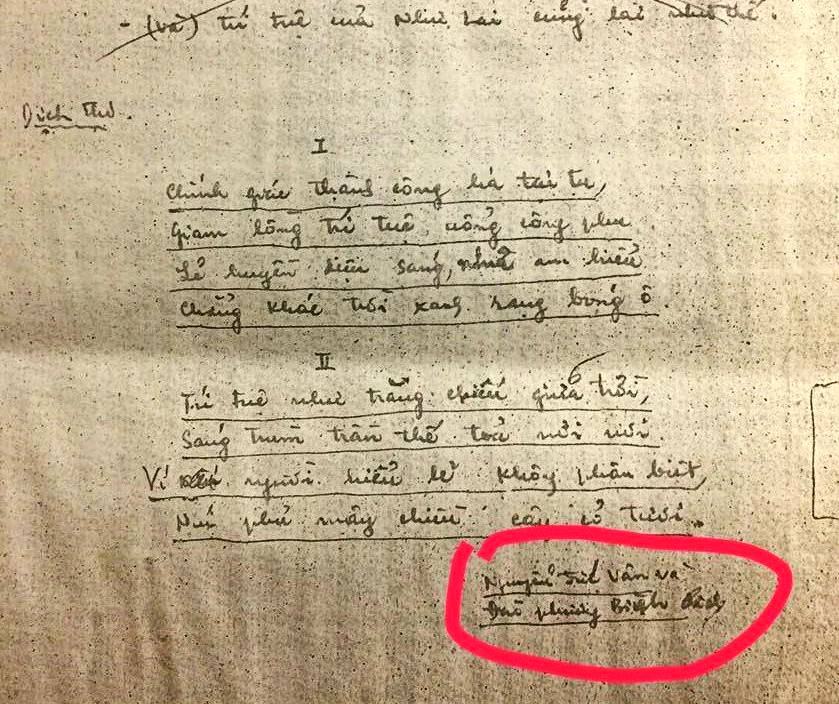 - (và) trí tuệ của Như Lai cũng lại như thế.
Dịch thơ.
I
Chính giác thành công há tại tu,
Giam lồng trí tuệ, uổng công phu
Lẽ huyền diệu sáng, am hiểu
Chẳng khác trời xanh rạng bóng ô.
II
Trí tuệ như trăng chiếu giữa trời,
Sáng trùm trần thế toả nơi nơi.
Ví người hiểu lẽ không phân biệt,
Núi phủ mây chiều cây cỏ tươi.
Nguyễn Đức Vân và
Đào Phương Bình dịch